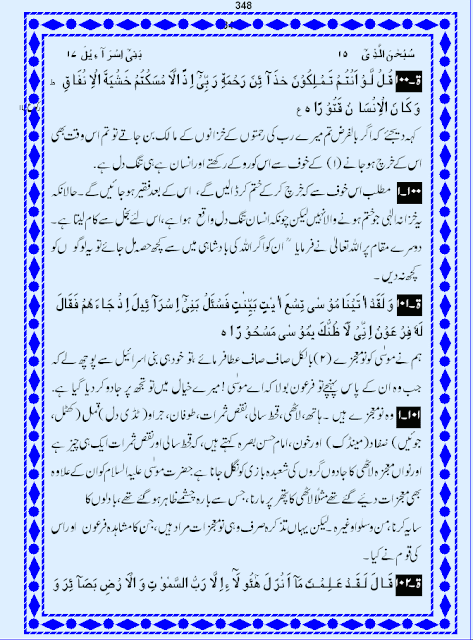 348
سُبْحٰنَ الَّذِىْٓ ۱۵ بَنِیْٓ اِسْرَآءِیْلَ ۱۷
ق-۱۰۰ قُلْ لَّوْ اَنْتُمْ تَمْلِكُوْنَ خَزَآئِنَ رَحْمَةِ رَبِّیْٓ اِذًا لَّاَمْسَكْتُمْ خَشْیَةَ الْاِنْفَاقِ ؕ
وَكَانَ الْاِنْسَانُ قَتُوْرًا ﴿﴾ ع
کہہ دیجئے کہ اگر بالفرض تم میرے رب کی رحمتوں کے خزانوں کے مالک بن جاتے تو تم اس وقت بھی
اس کے خرچ ہو جانے (۱) کے خوف سے اس کو روکے رکھتے اور انسان ہے ہی تنگ دل ہے.
۱۰۰-۱ مطلب اس خوف سے کہ خرچ کر کے ختم کر ڈالیں گے، اس کے بعد فقیر ہو جائیں گے۔ حالانکہ
یہ خزانہ الٰہی جو ختم ہونے والا نہیں لیکن چونکہ انسان تنگ دل واقع ہوا ہے، اس لئے بخل سے کام لیتا ہے۔
دوسرے مقام پر اللہ تعالٰی نے فرمایا " ان کو اگر اللہ کی بادشاہی میں سے کچھ حصہ مل جائے تو یہ لوگوں کو
کچھ نہ دیں۔
ق-۱۰۱ وَلَقَدْ اٰتَیْنَا مُوْسٰی تِسْعَ اٰیٰتٍۭ بَیِّنٰتٍ فَسْئَلْ بَنِیْٓ اِسْرَآئِیْلَ اِذْ جَآءَهُمْ فَقَالَ
لَهٗ فِرْعَوْنُ اِنِّیْ لَاَظُنُّكَ یٰمُوْسٰی مَسْحُوْرًا ﴿﴾
ہم نے موسیٰ کو نو معجزے (۲) بالکل صاف صاف عطا فرمائے، تو خود ہی بنی اسرائیل سے پوچھ لے کہ
جب وہ ان کے پاس پہنچے تو فرعون بولا کہ اے موسیٰ! میرے خیال میں تو تجھ پر جادو کر دیا گیا ہے.
۱۰۱-۱ وہ نو معجزے ہیں۔ ہاتھ، لاٹھی، قحط سالی، نقص ثمرات، طوفان، جراد (ٹڈی دل) قمل (کھٹمل،
جوئیں) ضفاد (مینڈک) اور خون، امام حسن بصرہ کہتے ہیں، کہ قحط سالی اور نقص ثمرات ایک ہی چیز ہے
اور نواں معجزہ لاٹھی کا جادوگروں کی شعبدہ بازی کو نگل جانا ہے حضرت موسٰی علیہ السلام کو ان کے علاوہ
بھی معجزات دیئے گئے تھے مثلًا لاٹھی کا پتھر پر مارنا، جس سے بارہ چشمے ظاہر ہو گئے تھے، بادلوں کا
سایہ کرنا، من و سلوا وغیرہ۔ لیکن یہاں تذکرہ صرف وہی نو معجزات مراد ہیں، جن کا مشاہدہ فرعون اور اس
کی قوم نے کیا۔
ق-۱۰۲ قَالَ لَقَدْ عَلِمْتَ مَآ اَنْزَلَ هٰٓؤُلَآءِ اِلَّا رَبُّ السَّمٰوٰتِ وَالْاَرْضِ بَصَآئِرَ وَ